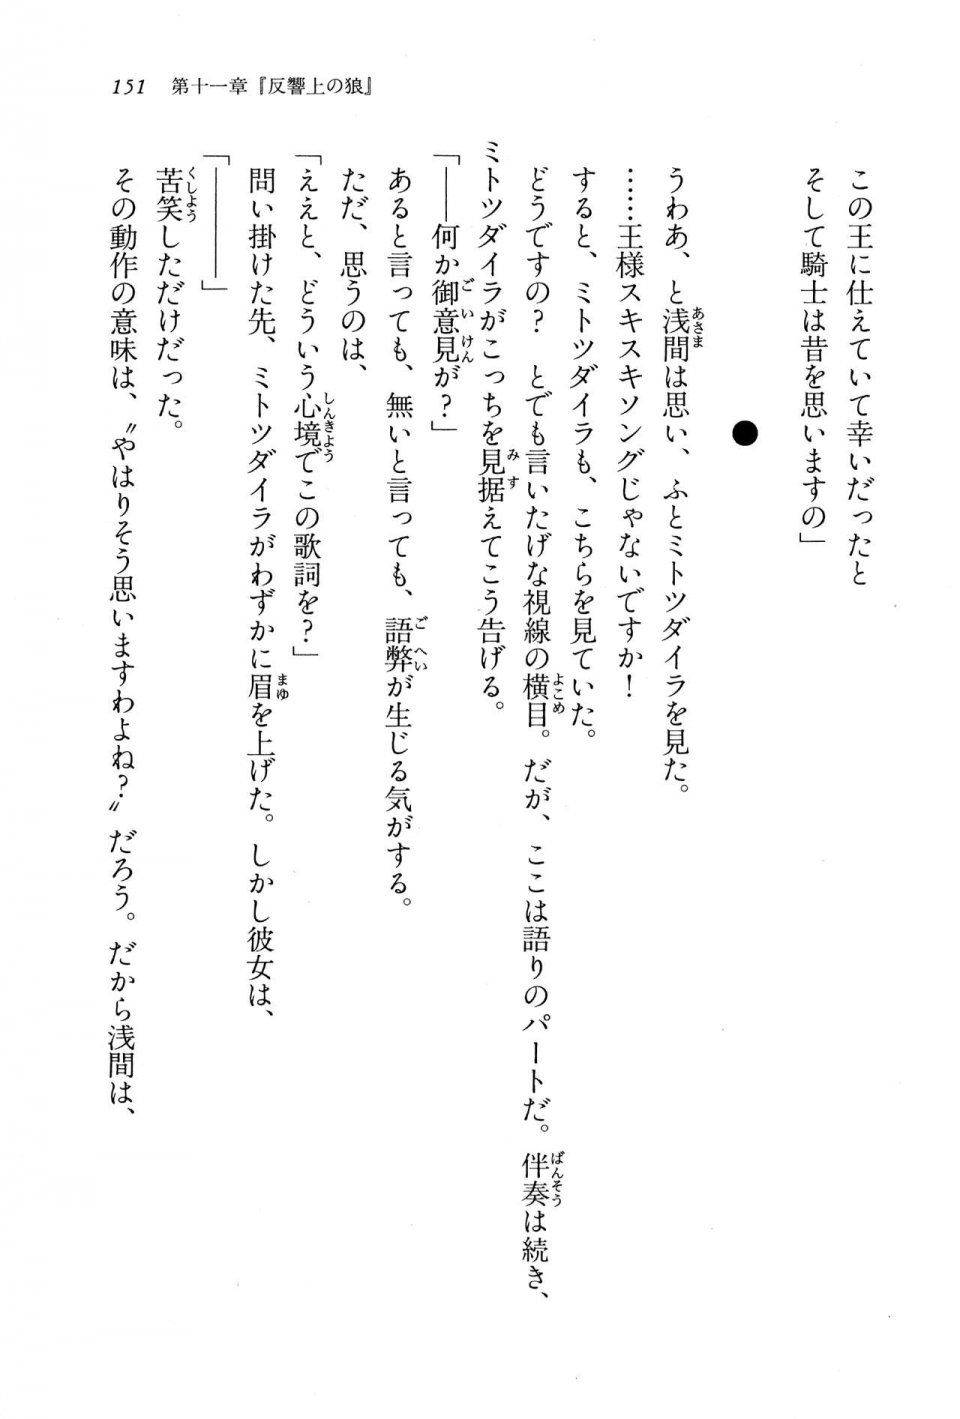 151　第十一章『反響上の狼』
この王に仕えていて幸いだったと
そして騎士は昔を思いますの」
●
うわあ、と浅間は思い、ふとミトツダイラを見た。
……王様スキスキソングじゃないですか！
すると、ミトツダイラも、こちらを見ていた。
どうですの？　とでも言いたげな視線の横目。だが、ここは語りのパートだ。伴奏は続き、
ミトツダイラがこっちを見据えてこう告げる。
「――何か御意見が？」
あると言っても、無いと言っても、語弊が生じる気がする。
ただ、思うのは、
「ええと、どういう心境でこの歌詞を？」
問い掛けた先、ミトツダイラがわずかに眉を上げた。しかし彼女は、
「――――」
苦笑しただけだった。
その動作の意味は、〝やはりそう思いますわよね？〟だろう。だから浅間は、